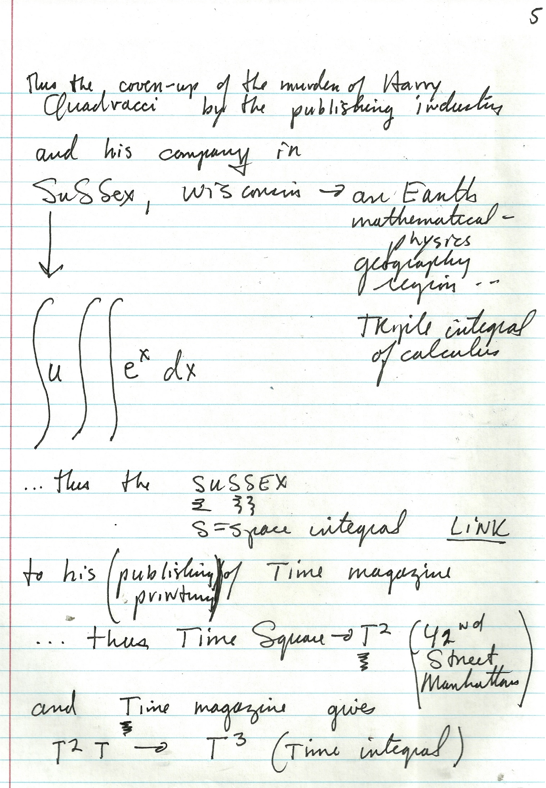 5
Thus the cover-up of the murder of Harry
Quadracci by the publishing industry
and his company in
SuSSex, Wisconsin → an Earth
mathematical-
physics
geography
region ...
Triple integral
of calculus
∫u∫∫e^x dx
... thus the SUSSEX
S = space integral LINK
to his (publishing printing) of Time magazine
... thus Time Square → T² (42nd
Street
Manhattan)
and Time magazine gives
T² T → T³ (Time integral)